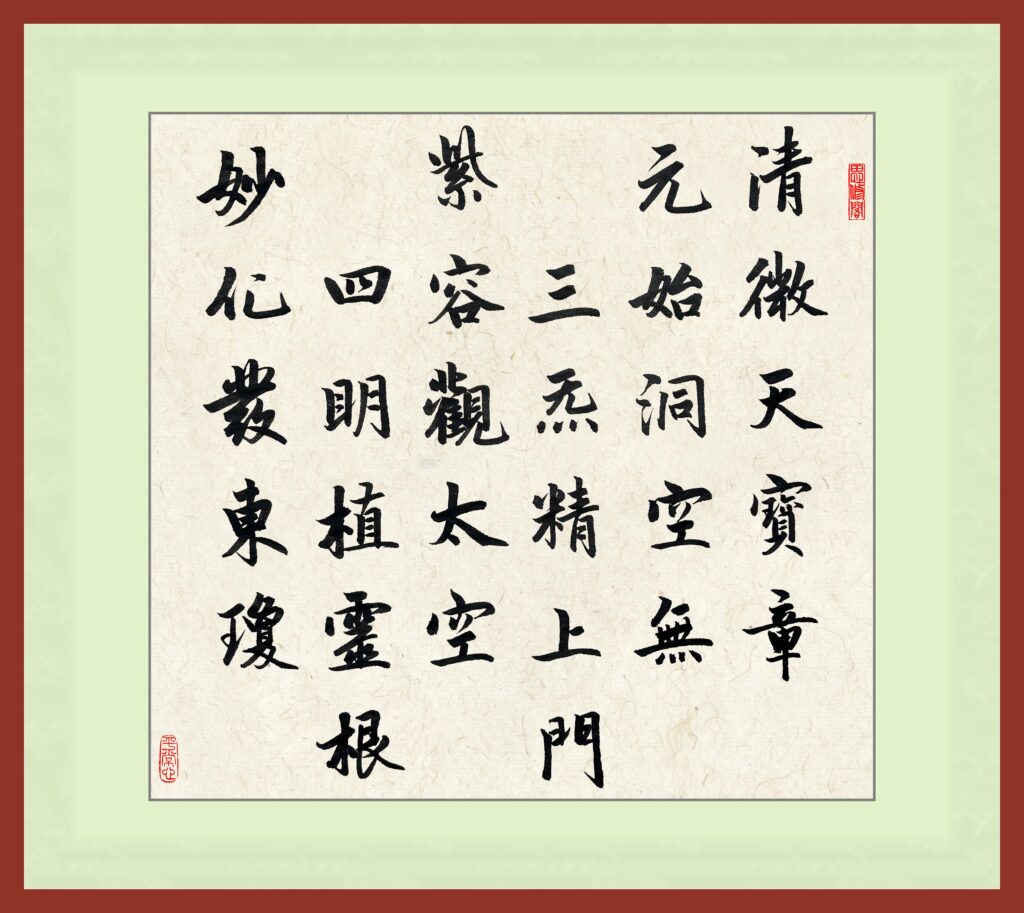 思修閣
清微天寶章
元始洞空無
三炁精上門
紫容觀太空
四明植靈根
妙化發東瓊
平常心